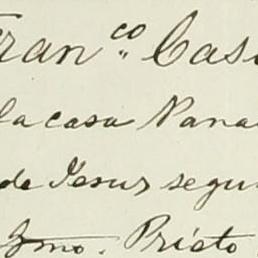 Fran.co Cas
la casa Pana
de Jesus segu
Yzmo. Prieto